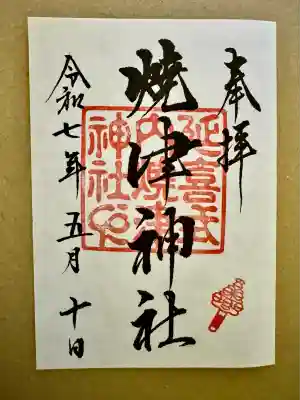 奉拝
燒津神社
延喜式
内燒津
神社之
令和七年五月十日